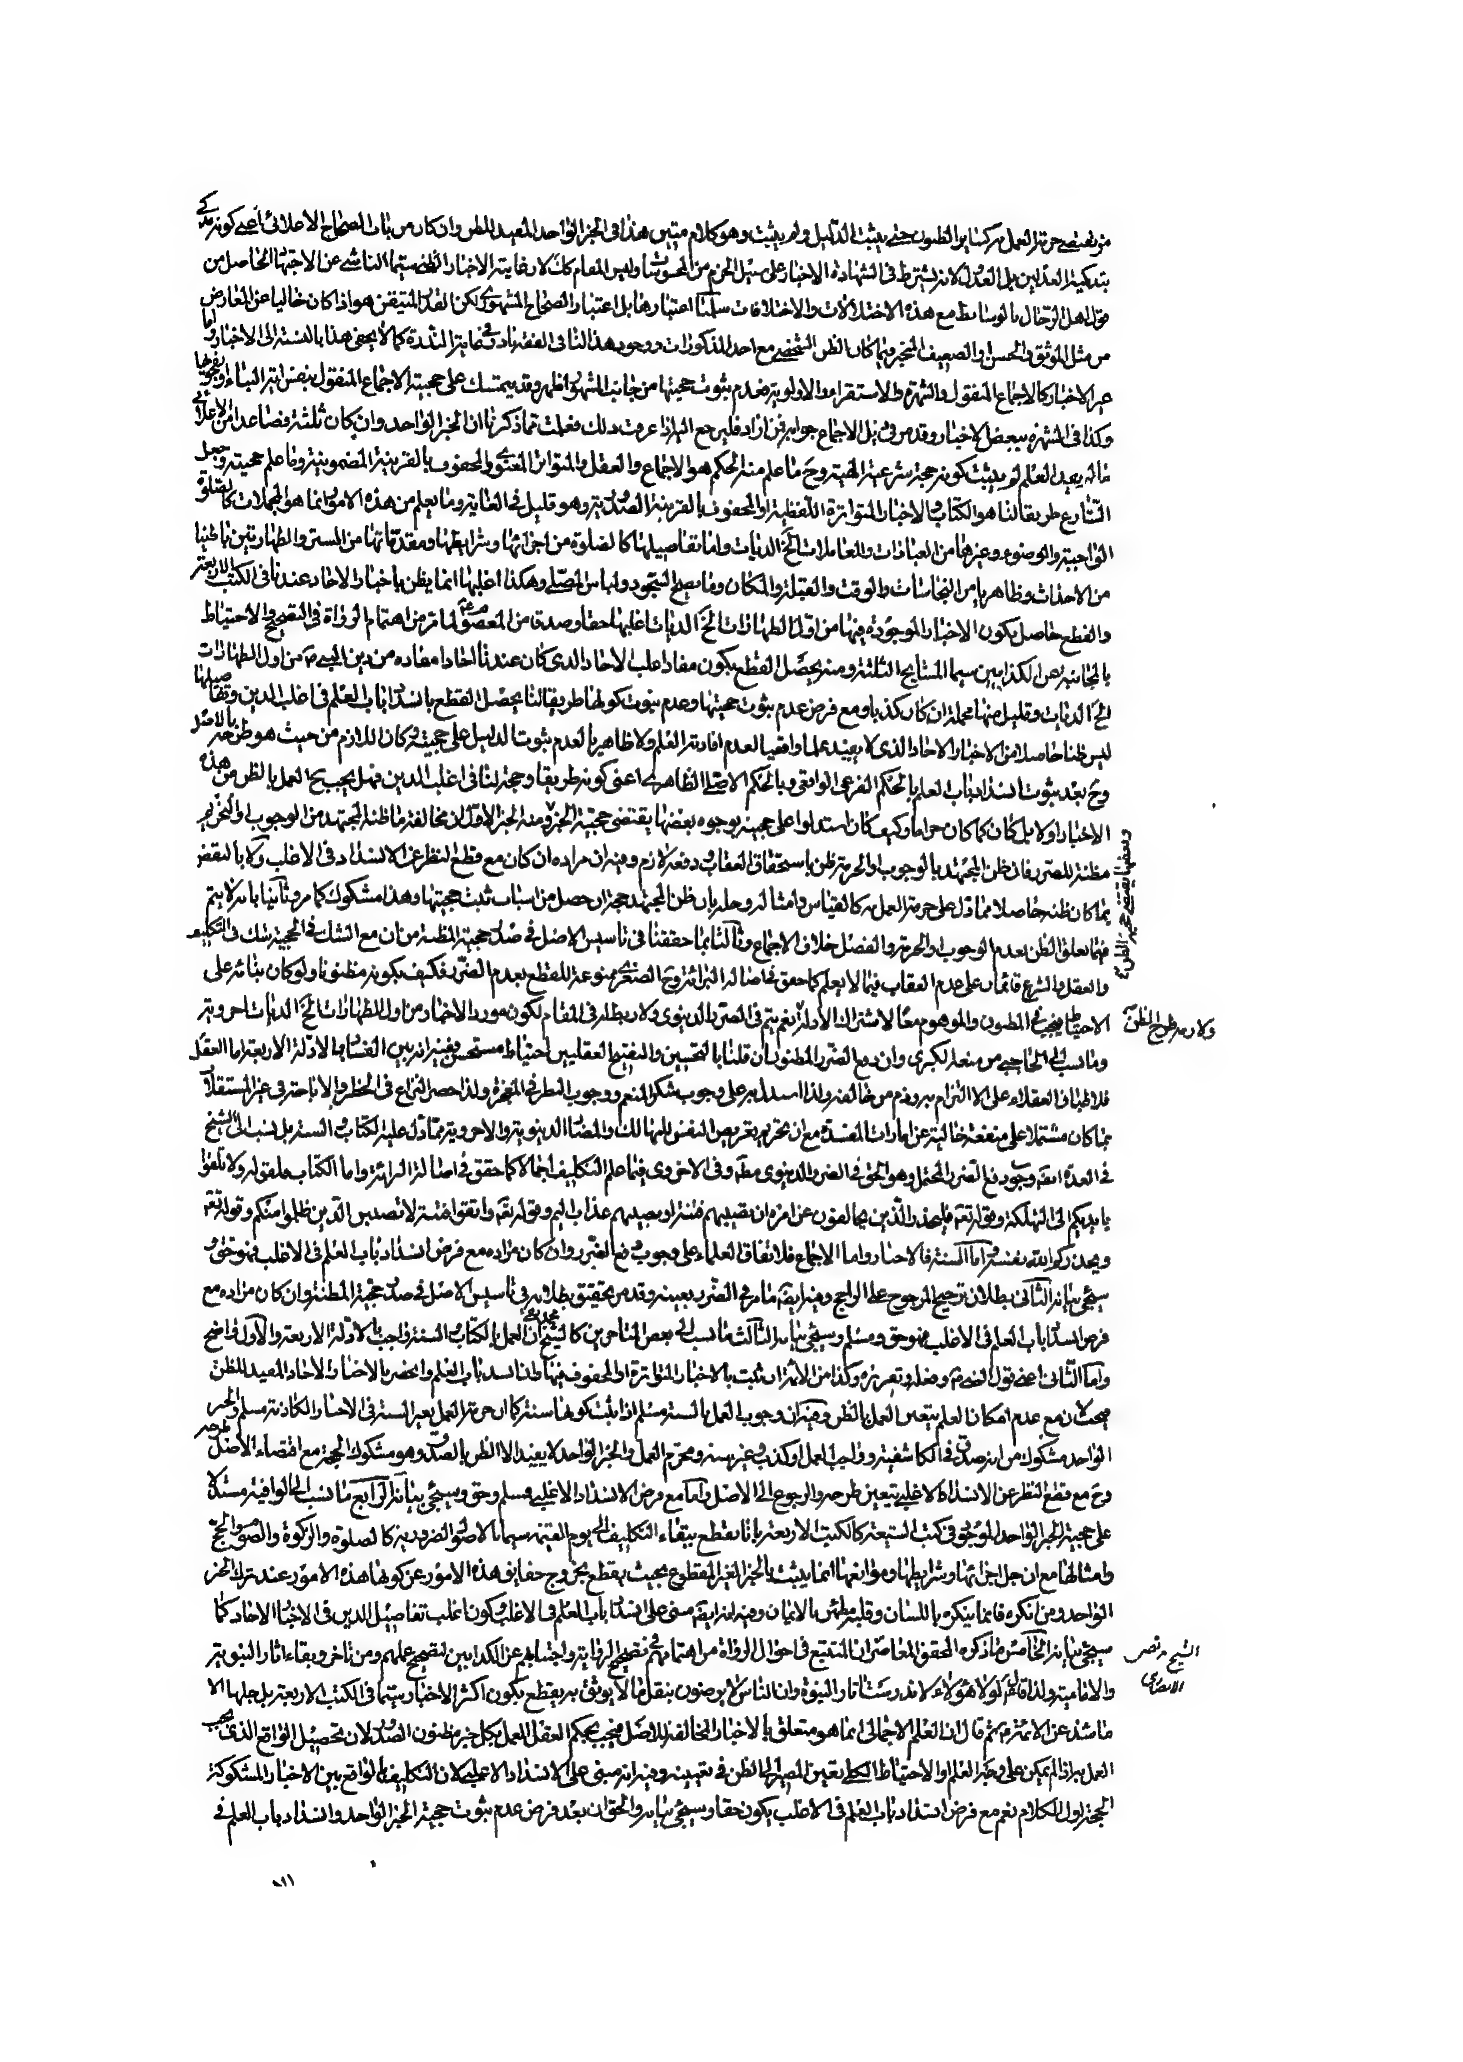 من يقتضي حرمة العمل به كسائر الظنون حتى يثبت الدليل ولم يثبت وهو كلام متين هذا في الخبر الواحد المفيد للظن وان كان من باب الصحاح الاعلائي اعني كونه مزكى
بتزكية العدلين بل العدل لانه يشترط في الشهادة الاخبار على سبيل الجزم من المحسوسات وليس المقام كك لان غايته الاخبار الظني سيما الناشي عن الاجتهاد الحاصل من
قول اهل الرجال بالوسائط مع هذه الاختلالات والاختلافات سلمنا اعتبارها بل اعتبار الصحاح المشهوري لكن القدر المتيقن هو اذا كان خاليا عن المعارض
من مثل الموثق والحسن والضعيف المنجبر فيما كان الظن الشخصي مع احد المذكورات ووجود هذا النافي الفقه نادر في غاية الندرة كما لا يخفى هذا بالنسبة الى الاخبار واما
غير الاخبار كالاجماع المنقول والشهرة والاستقراء والاولوية فعدم ثبوت حجيتها من جانب المشهور اظهر وقد يتمسك على حجية الاجماع المنقول بنفس اية النباء او بفحويها
وكذا في الشهرة ببعض الاخبار وقد مر في ذيل الاجماع جوابه فمن اراد فليرجع اليه اذا عرفت ذلك فعلمت مما ذكرنا ان الخبر الواحد وان كان ثلثة فصاعدا من الاعلائي
ما لم يفد العلم لم يثبت كونه حجة شرعية الهية وح ما علم منه الحكم هو الاجماع والعقل والمتواتر المعنوي والمحفوف بالقرينة المضمونية وما علم حجيته وجعل
الشارع طريقا لنا هو الكتاب والاخبار المتواترة اللفظية او المحفوف بالقرينة الصدورية وهو قليل في الغاية وما يعلم من هذه الامور انما هو المجملات كالصلوة
الواجبة والوضوء وغيرها من العبادات والمعاملات الخ الديات واما تفاصيلها كالصلوة من اجزائها وشرايطها ومقدماتها من الستر والطهارتين باطنها
من الاحداث وظاهرها من النجاسات والوقت والقبلة والمكان وما يصح السجود ولباس المصلي وهكذا اغلبها انما يظن باخبار الاحاد عندنا في الكتب الاربعة
والقطع حاصل بكون الاخبار الموجودة فيها من اول الطهارات الخ الديات اغلبها حقا وصدقا من المعصوم لما مر من اهتمام الرواة في التصحيح والاحتياط
بالمجانبة عن الكذابين سيما المشايخ الثلثة ومنه يحصل القطع بكون مفاد اغلب الاحاد الذي كان عندنا اتحادا مفاده من دين النبي ص من اول الطهارات
الخ الديات وقليل منها مجملة ان كان كذبا ومع فرض عدم ثبوت حجيتها وعدم ثبوت كونها طريقا لنا يحصل القطع بانسداد باب العلم في اغلب الدين وتفاصيلها
ليس ظنا حاصلا من الاخبار الاحاد الذي لا يفيد علما واقعيا لعدم افادته العلم ولا ظاهريا لعدم ثبوت الدليل على حجيته وكان اللازم من حيث هو طرحه بالاصل
وح بعد ثبوت انسداد باب العلم بالحكم الفرعي الواقعي وبالحكم الاصلي الظاهري اعني كونه طريقا وحجة لنا في اغلب الدين فهل يجب ح العمل بالظن من هذه
الاخبار او لا بل كان كما كان حراما وكيف كان استدلوا على حجيته بوجوه بعضها يقتضي حجية الخبر ومنه الخبر الاول ان مخالفة ما ظنه المجتهد من الوجوب والتحريم
مظنة للضرر فان ظن المجتهد بالوجوب او الحرمة ظن باستحقاق العقاب ودفعه لازم وفيه ان مراده ان كان مع قطع النظر عن الانسداد في الاغلب ولا بالنقض
بما كان ظنه حاصلا مما دل على حرمة العمل به كالقياس وامثاله وحله بان ظن المجتهد حجة ان حصل من اسباب ثبت حجيتها وهذا مشكوك كما مر وثانيا بانه لا يتم
فيما تعلق الظن بعدم الوجوب او الحرمة والفصل خلاف الاجماع وثالثا بما حققنا في تاسيس الاصل في صدر حجية المظنة من ان مع الشك في الحجية يشك في التكليف
والعقل والشرع قائمان على عدم العقاب فيما لا يعلم كما حقق في اصالة البرائة وح الصغرى ممنوعة للقطع بعدم الضرر فكيف بكونه مظنونا ولو كان بنائه على
الاحتياط فيجب في المظنون والموهوم معا لاشتراك الادلة نعم يتم في الضرر الدنيوي ولا ربط له في المقام لكون مورد الاخبار من اول الطهارات الخ الديات اخروية
وما نسب الى الحاجبي من منعه الكبرى وان دفع الضرر المظنون ان قلنا بالتحسين والتقبيح العقليين احتياط مستحسن وفيه انه بين الفساد بالادلة الاربعة اما العقل
فلاطباق العقلاء على الالتزام به وذم من خالفه ولذا استدل به على وجوب شكر المنعم ووجوب النظر في المعجزة ولذا حصر النزاع في الحظر والاباحة في غير المستقلات
مما كان مشتملا على منفعة خالية عن امارات المفسدة مع ان تحريم تعريض النفس للمهالك والمضار الدنيوية والاخروية مما دل عليه الكتاب والسنة بل نسب الى الشيخ
في العدة ايضه وجوب دفع الضرر المحتمل وهو الحق في الضرر الدنيوي مطلقا وفي الاخروي فيما علم التكليف اجمالا كما حقق في اصالة البرائة واما الكتاب فلقوله ولا تلقوا
بايديكم الى التهلكة وقوله تعه فليحذر الذين يخالفون عن امره ان تصيبهم فتنة او يصيبهم عذاب اليم وقوله تعه واتقوا فتنة لا تصيبن الذين ظلموا منكم وقوله تعه
ويحذركم الله نفسه واما السنة فالاخبار واما الاجماع فلاتفاق العلماء على وجوب دفع الضرر وان كان مراده مع فرض انسداد باب العلم في الاغلب فهو حق و
سيجئ بيانه الثاني بطلان ترجيح المرجوح على الراجح وفيه ايضه ما مر في الضرر بعينه وقد مر تحقيق بطلانه في تاسيس الاصل في صدر حجية المظنة وان كان مراده مع
فرض انسداد باب العلم في الاغلب فهو حق ومسلم وسيجئ بيانه الثالث ما نسب الى بعض المتاخرين كالشيخ محمد تقي ان العمل بالكتاب والسنة واجب بالادلة الاربعة والاول واضح
واما الثاني اعني قول النبي ص وفعله وتقريره وكذا من الائمة ان ثبت بالاخبار المتواترة او المحفوف فبها وان انسد باب العلم وانحصر بالاخبار الاحاد المفيد للظن
فيجب لان مع عدم امكان العلم يتعين العمل بالظن وفيه ان وجوب العمل بالسنة مسلم اذا ثبت كونها سنة كما ان حرمة العمل بغير السنة في الاخبار الكاذبة مسلم والخبر
الواحد مشكوك من انه صدق في الكاشفية وواجب العمل او كذب وغير سنة ومحرم العمل والخبر الواحد لا يفيد الا الظن بالصدور وهو مشكوك الحجة مع اقتضاء الاصل طرحه
وح مع قطع النظر عن الانسداد الاغلبي يتعين طرحه والرجوع الى الاصل واما مع فرض الانسداد الاغلبي فمسلم وحق وسيجئ بيانه الرابع ما نسب الى الوافية مستدلا
على حجية الخبر الواحد الموجود في كتب الشيعة كالكتب الاربعة بانا نقطع ببقاء التكليف الى يوم القيمة سيما بالاصول الضرورية كالصلوة والزكوة والصوم والحج
وامثالها مع ان جل اجزائها وشرايطها وموانعها انما يثبت بالخبر الغير المقطوع بحيث يقطع بخروج حقايق هذه الامور عن كونها هذه الامور عند ترك الخبر
الواحد ومن انكره فانما ينكره باللسان وقلبه مطمئن بالايمان وفيه انه ايضه مبني على انسداد باب العلم في الاغلب وكون اغلب تفاصيل الدين في الاخبار الاحاد كما
سيجئ بيانه الخامس ما ذكره المحقق المعاصر ان التتبع في احوال الرواة من اهتمامهم في تصحيح الرواية واجتنابهم عن الكذابين لتصحيح عملهم ومن تاخر وبقاء اثار النبوية
والامامية ولذا قالوا لولا هؤلاء لاندرست اثار النبوة وان الناس لا يرضون بنقل ما لا يوثق به يقطع بكون اكثر الاخبار سيما في الكتب الاربعة بل جلها الا
ما شذ عن الائمة ثم قال ان العلم الاجمالي انما هو متعلق بالاخبار المخالفة للاصل فيجب بحكم العقل العمل بكل خبر مظنون الصدور لان تحصيل الواقع الذي يجب
العمل به اذا لم يمكن على وجه العلم او الاحتياط الكلي تعين المصير الى الظن في تعيينه وفيه انه مبني على الانسداد الاغلبي لان التكليف بالواقع بين الاخبار المشكوكة
الحجية اول الكلام نعم مع فرض انسداد باب العلم في الاغلب يكون حقا وسيجئ بيانه والحق ان بعد فرض عدم ثبوت حجية الخبر الواحد وانسداد باب العلم في
وبعضها يقتضي حجية الظن
الشيخ مرتضى
الانصاري